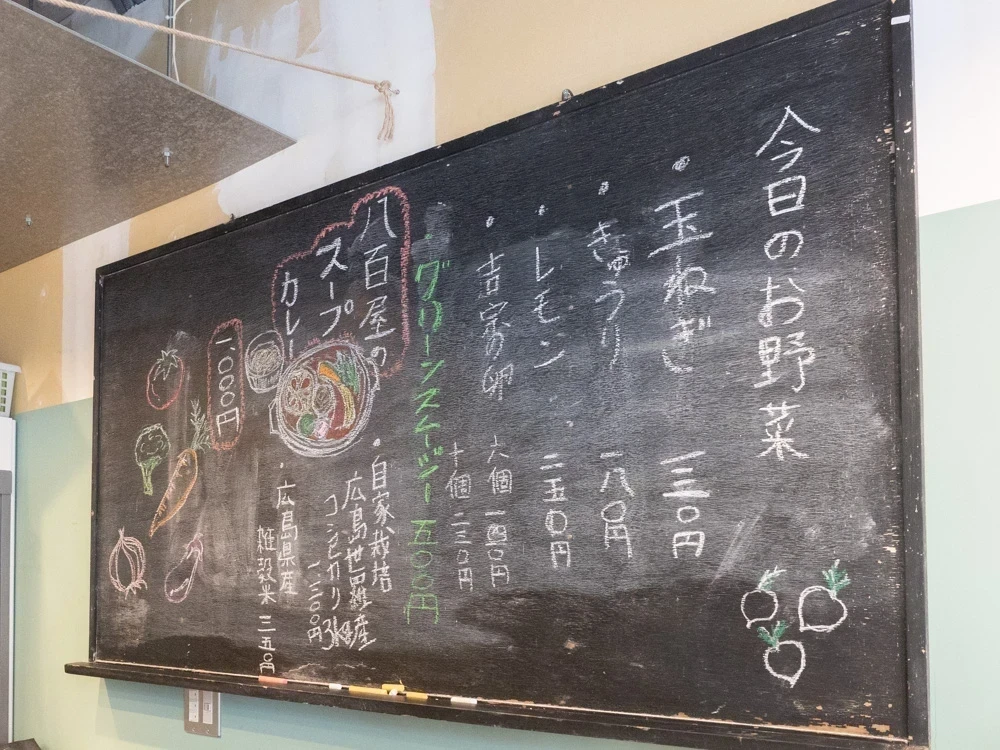 今日のお野菜
・玉ねぎ 一三〇円
・きゅうり 一八〇円
・レモン 二五〇円
・吉家の卵 六個 一四〇円
十個 二三〇円
・グリーンスムージー 五〇〇円
八百屋の
スープ
カレー
一〇〇〇円
・自家栽培
広島世羅産
コシヒカリ3kg
一三〇〇円
・広島県産
雑穀米 三五〇円